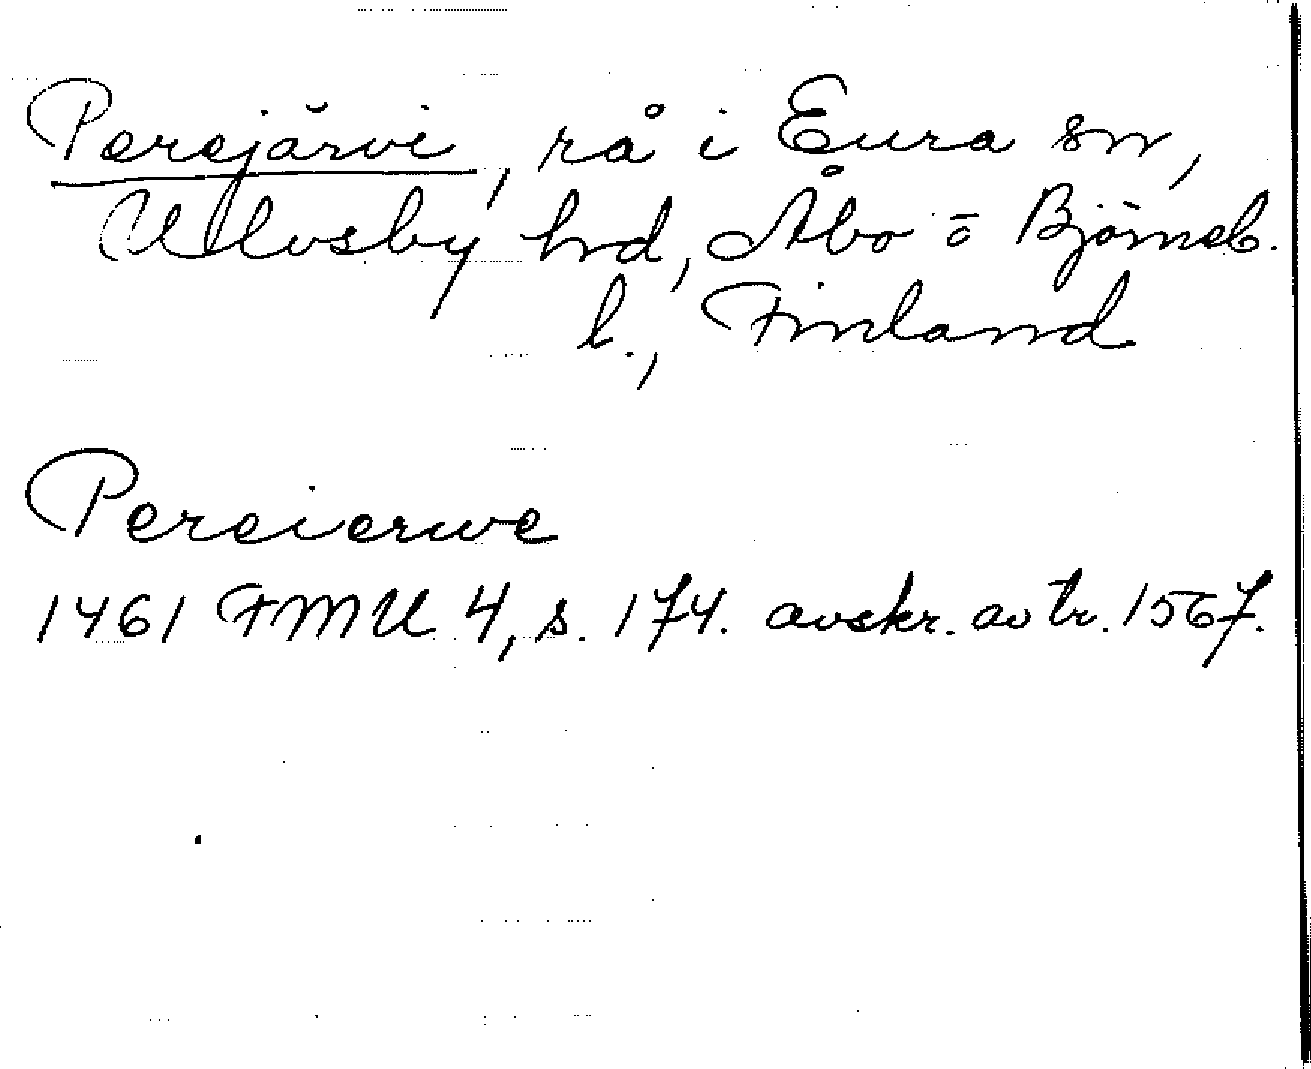 Perejärvi, rå i Eura sn,
Ulvsby hrd, Åbo o Björneb.
l., Finland
Pereierwe
1461 FMU 4, s. 174. avskr. av tr. 1567.